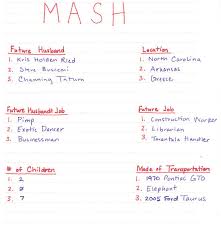 MASH
Future Husband
1. Kris Holden Ried
2. Steve Buscemi
3. Channing Tatum
Location
1. North Carolina
2. Arkansas
3. Greece
Future Husband's Job
1. Pimp
2. Exotic Dancer
3. Businessman
Future Job
1. Construction Worker
2. Librarian
3. Tarantula Handler
# of Children
1. 2
2.
3. 7
Mode of Transportation
1. 1970 Pontiac GTO
2. Elephant
3. 2005 Ford Taurus